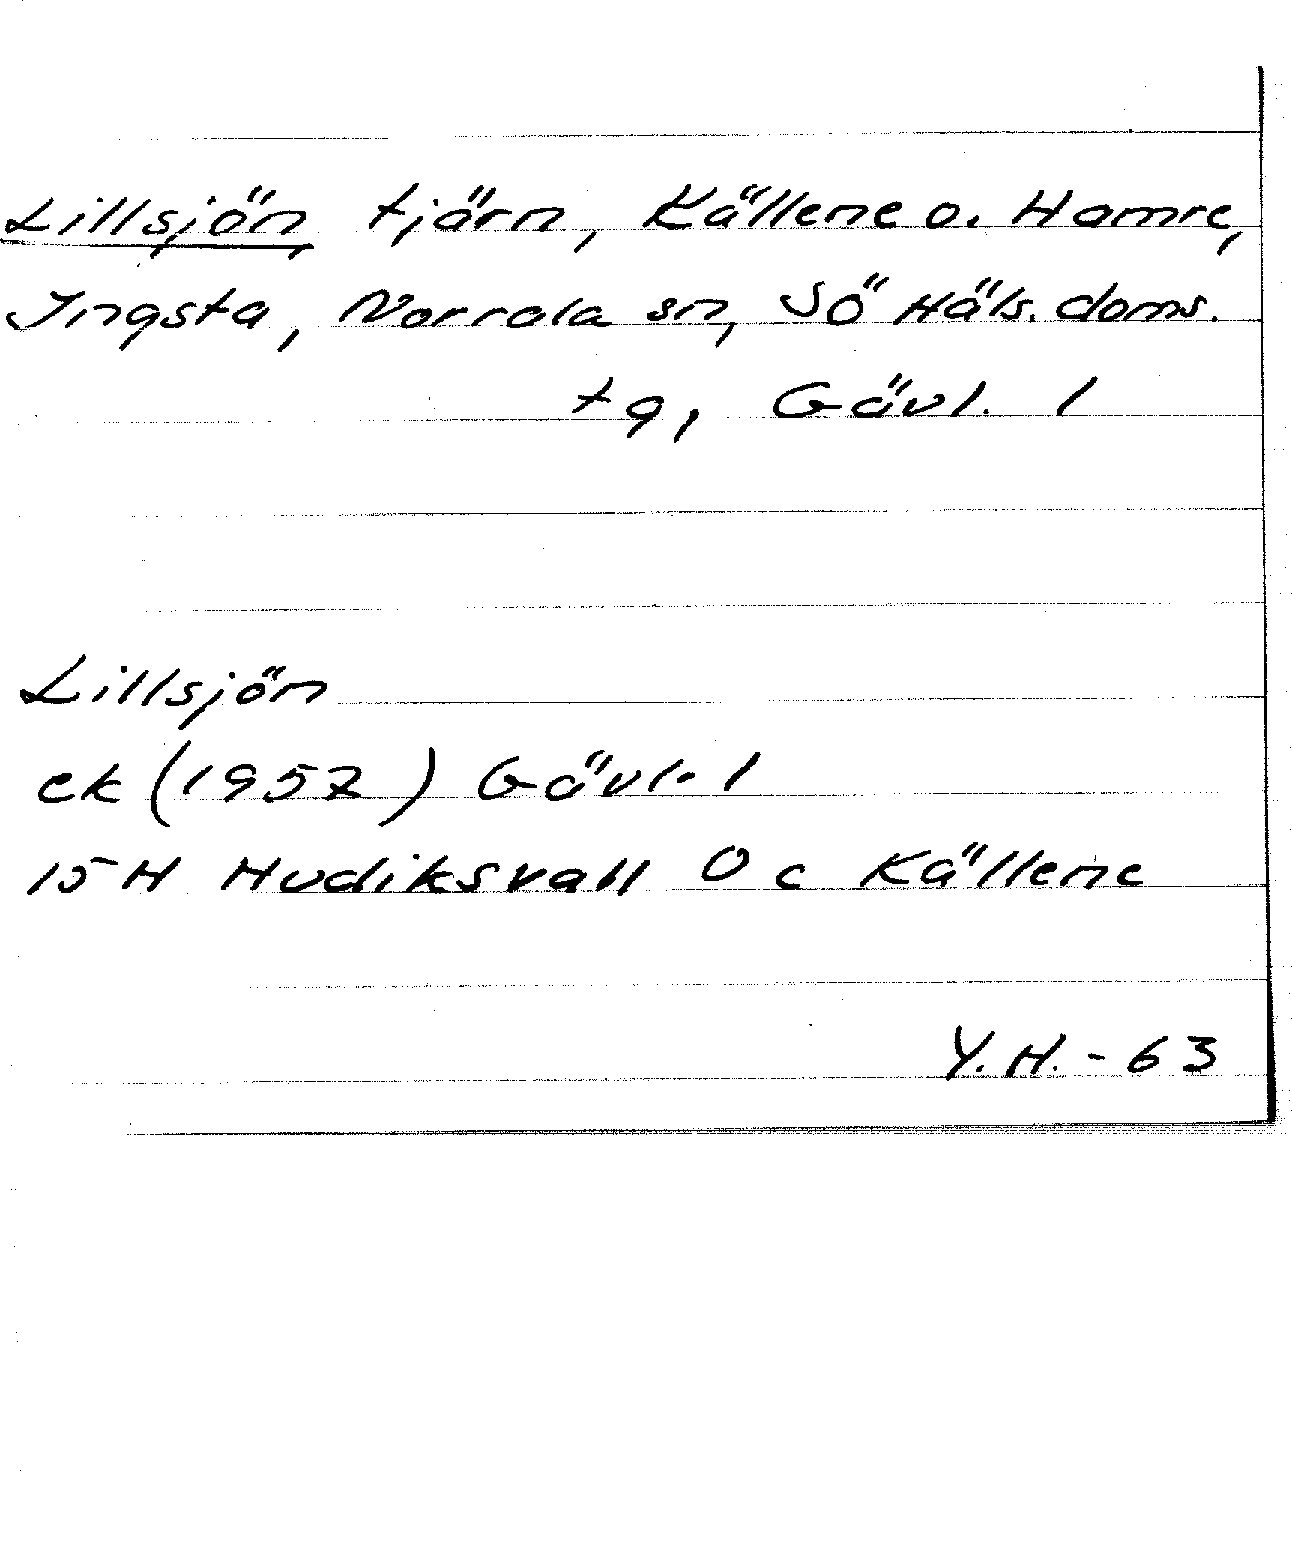 Lillsjön tjärn, Källene o. Hamre,
Yngsta, Norrala sn, SÖ Häls. doms.
tg, Gävl. l
Lillsjön
ek (1957) Gävl. l
15H Hudiksvall 0 c Källene
Y.H.-63